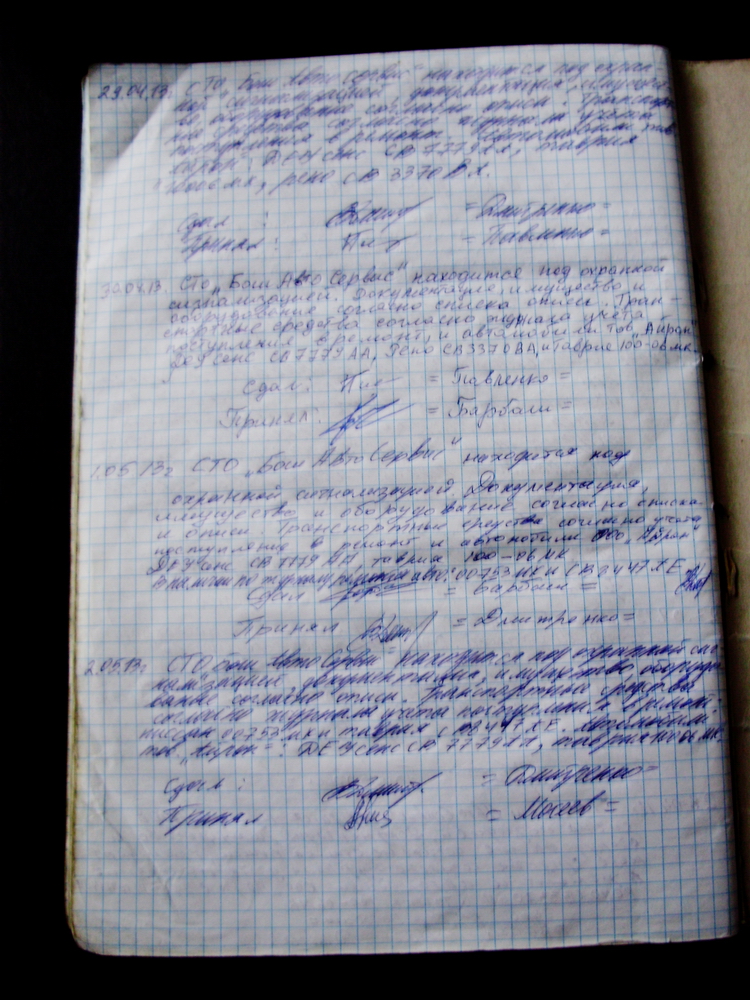 29.04.13. СТО "Бош Авто Сервис" находится под охран
ной сигнализацией документация, имущест
во оборудование согласно описи. Транспорт
ные средства согласно журнала учёта
поступления в ремонт. Автомобили тов
"Айрон" ДЭУ Сенс СВ 7779 АА, таврия
рено СВ 3370 ВА.
Сдал : = Дмитренко =
Принял : = Павленко =
30.04.13. СТО "Бош Авто Сервис" находится под охранной
сигнализацией. Документация, имущество и
оборудование согласно списка описи. Тран-
спортные средства согласно журнала учёта
поступления в ремонт, и автомобили тов "Айрон"
ДЭУ Сенс СВ 7779 АА, Рено СВ 3370 ВА, и Таврие 100-06 мк.
Сдал: = Павленко =
Принял. = Барбаш =
1.05 13г СТО "Бош Авто Сервис" находится под
охранной сигнализацией Документация,
имущество и оборудование согласно списка
и описи Транспортные средства согласно учёта
поступления в ремонт и автомобили ООО "Айрон"
ДЭУ Сенс СВ 7779 АА, таврия 100-06 МК
авто: 00753 МК и СВ 2447 ХЕ
Сдал = Барбаш =
Принял = Дмитренко =
2.05.13г СТО Бош Авто Сервис находится под охранной сиг
нализацией документация, имущество оборудо
вание согласно описи. Транспортные средства
согласно журнала учёта поступления в ремонт.
00753 мк и таврия СВ 2447 ХЕ. Автомобили
тов "Айрон" : ДЕУ Сенс СВ 7779 АА, таврия 100 06 мк.
Сдал : = Дмитренко =
Принял = Мосеев =